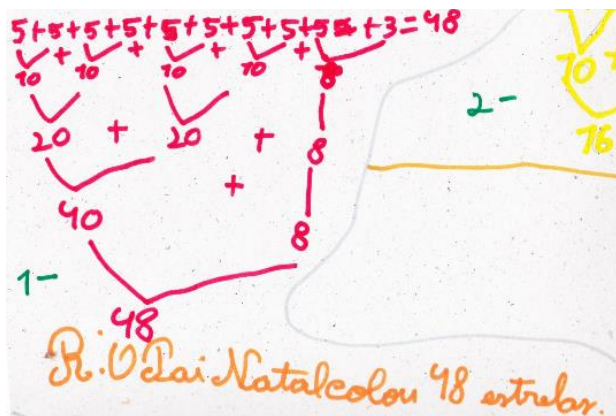 5+5+5+5+5+5+5+5+5+3=48
10 + 10 + 10 + 10 + 8
20 + 20 + 8
40 + 8
48
1-
2-
10
16
R: O Pai Natal colou 48 estrelas.